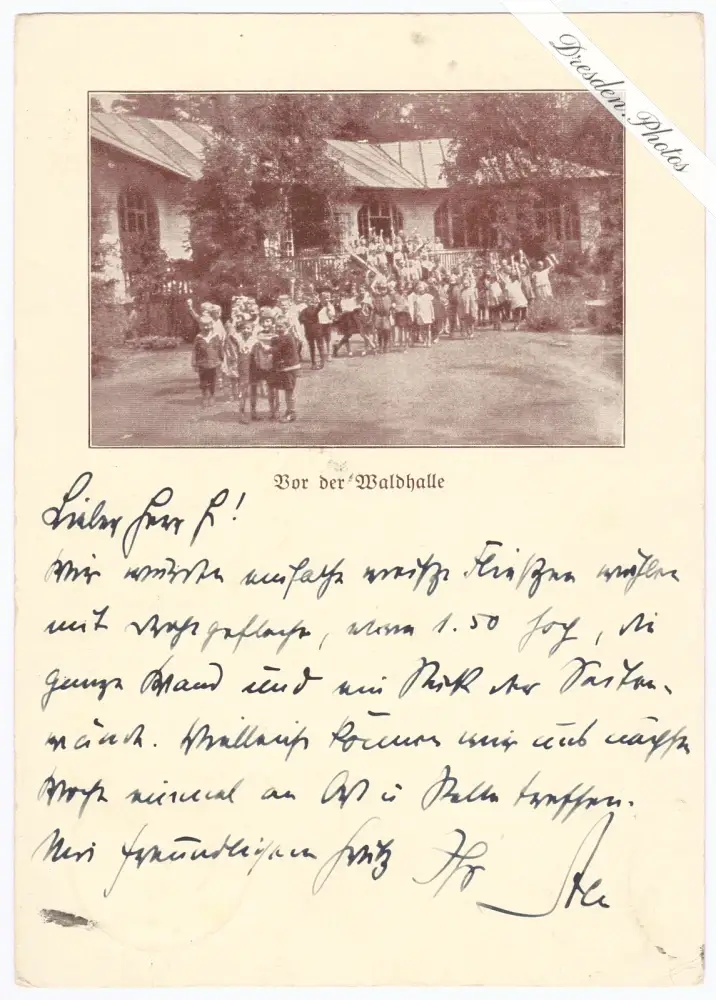 Dresden.Photos
Vor der Waldhalle
Lieber Herr H!
Wir würden einfache weiße Fließen wählen
mit, etwa 1.50 hoch, die
ganze Wand und ein Stück der Seiten-
wände. Vielleicht können wir uns nächste
Woche einmal an Ort u Stelle treffen.
Mit freundlichem Gruß Ihr